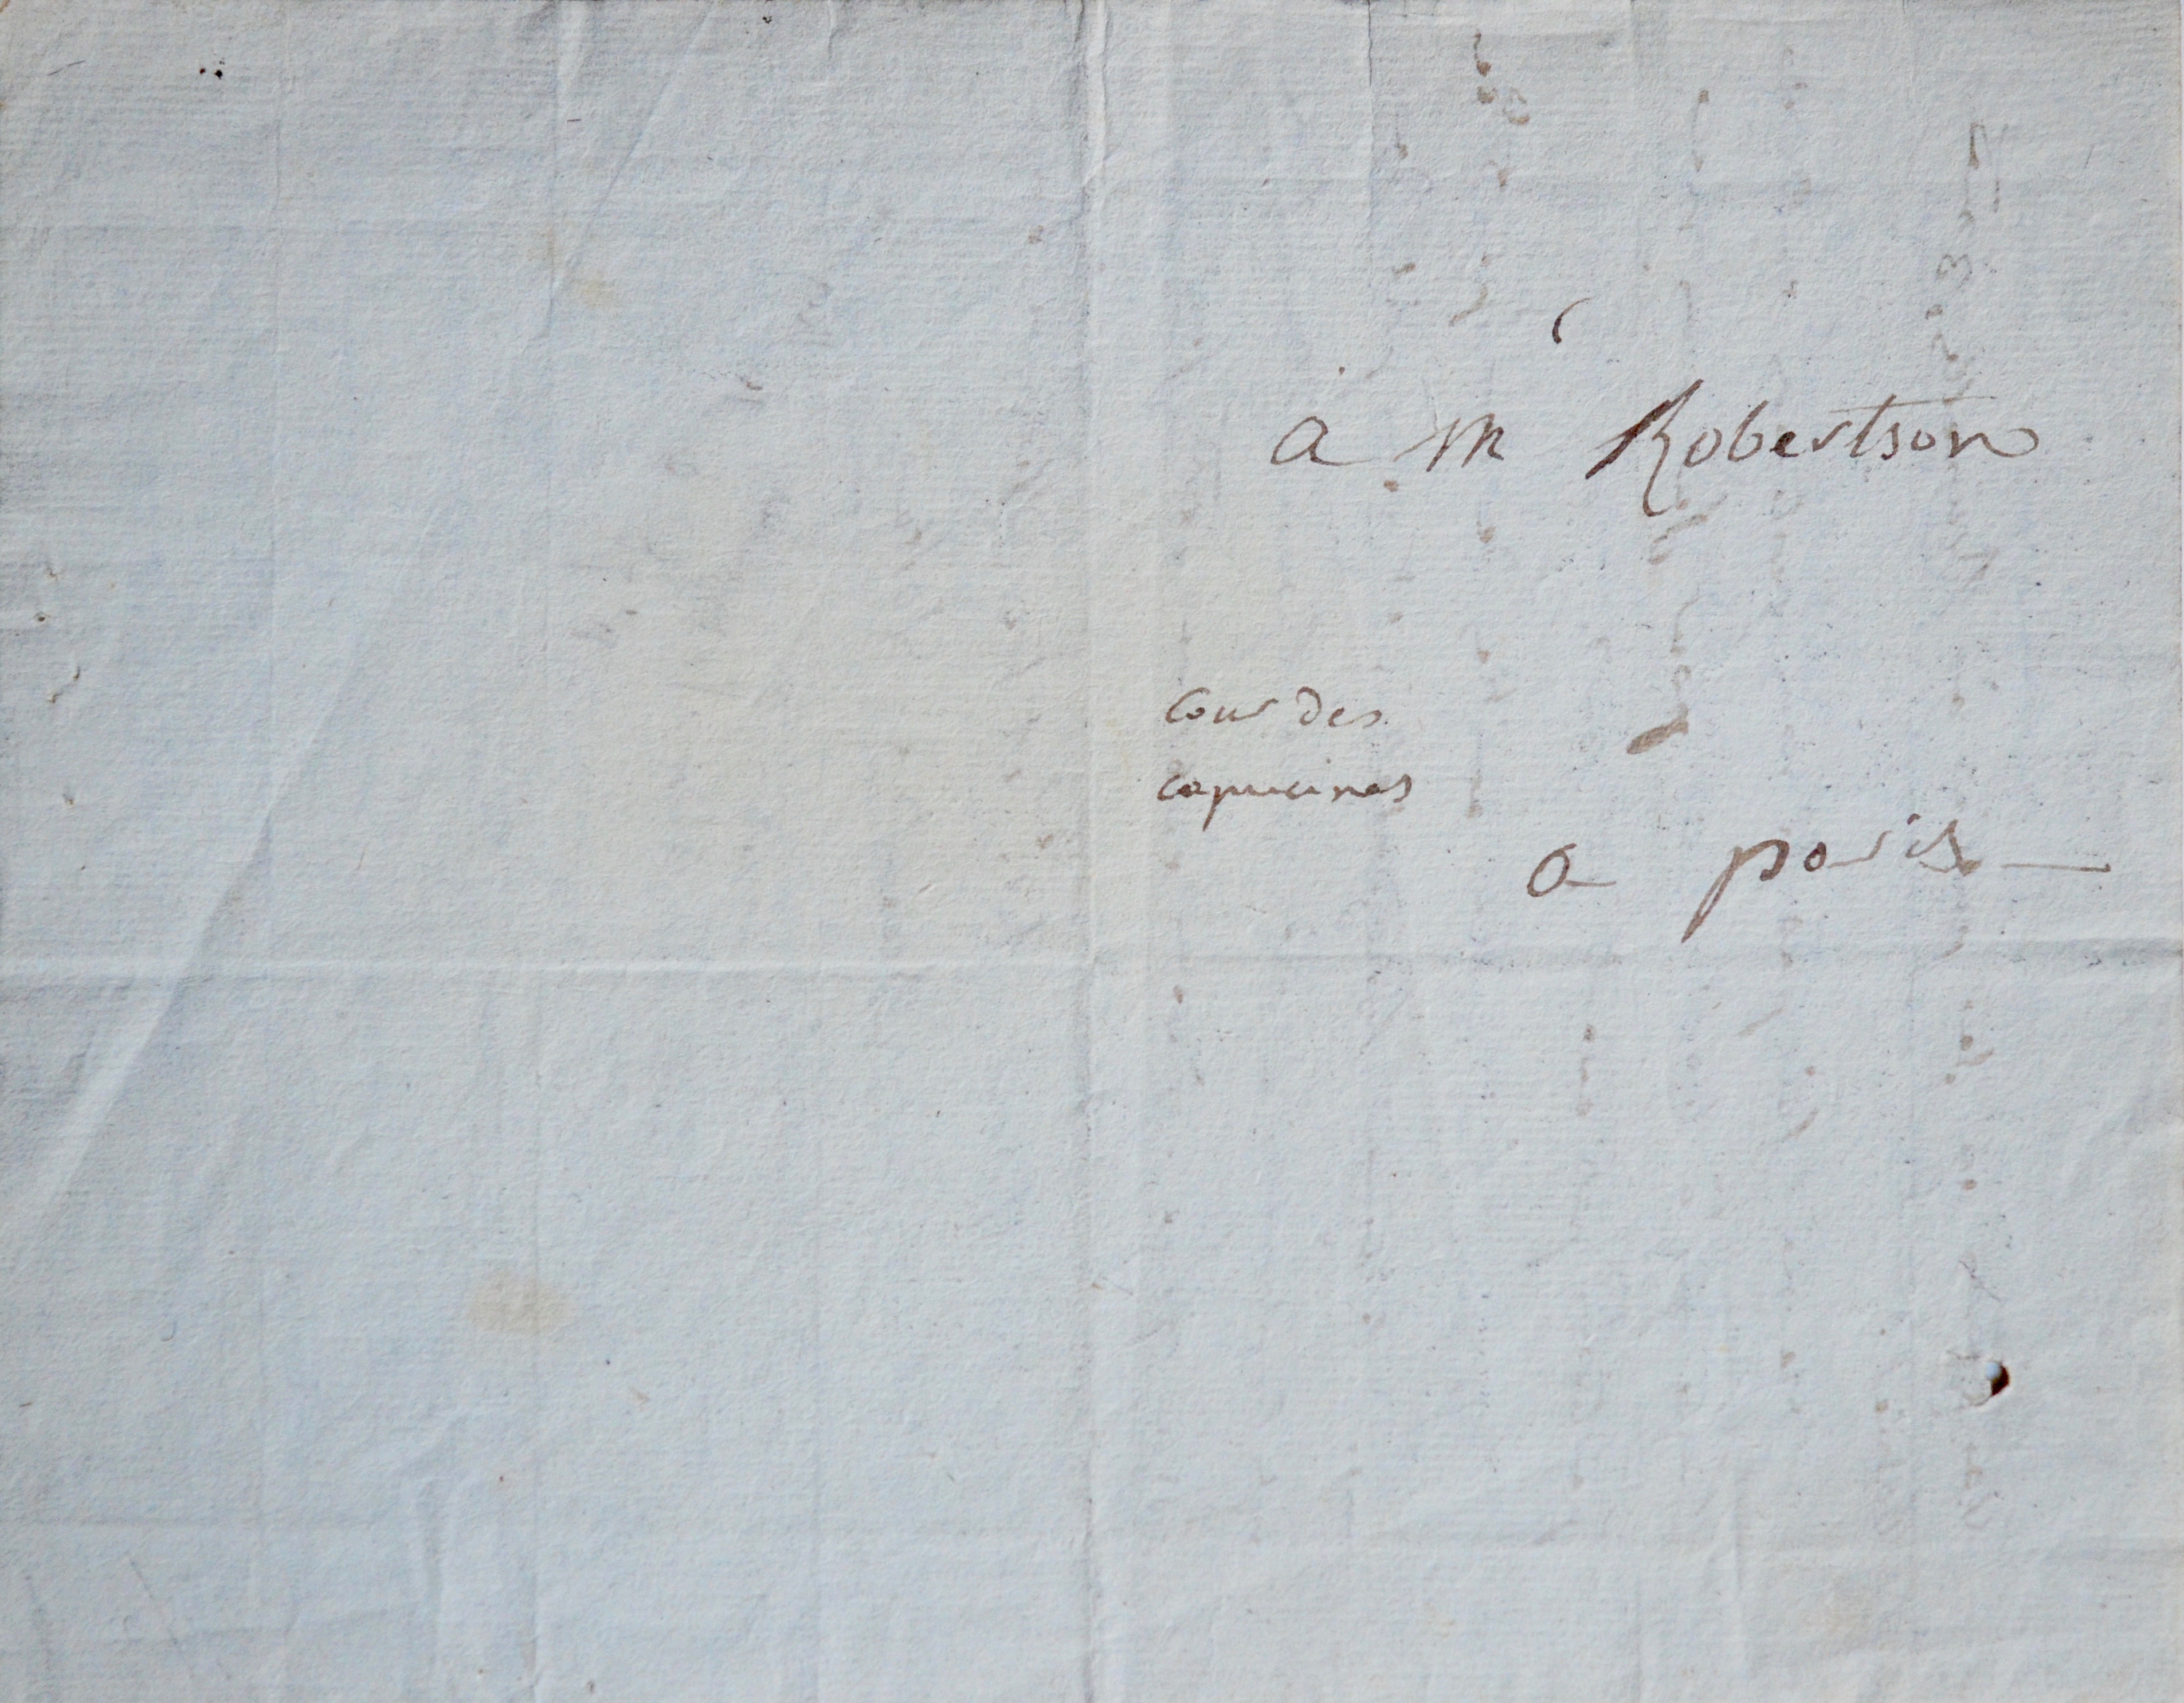 a m Robertson
Cour des
capucines
a paris